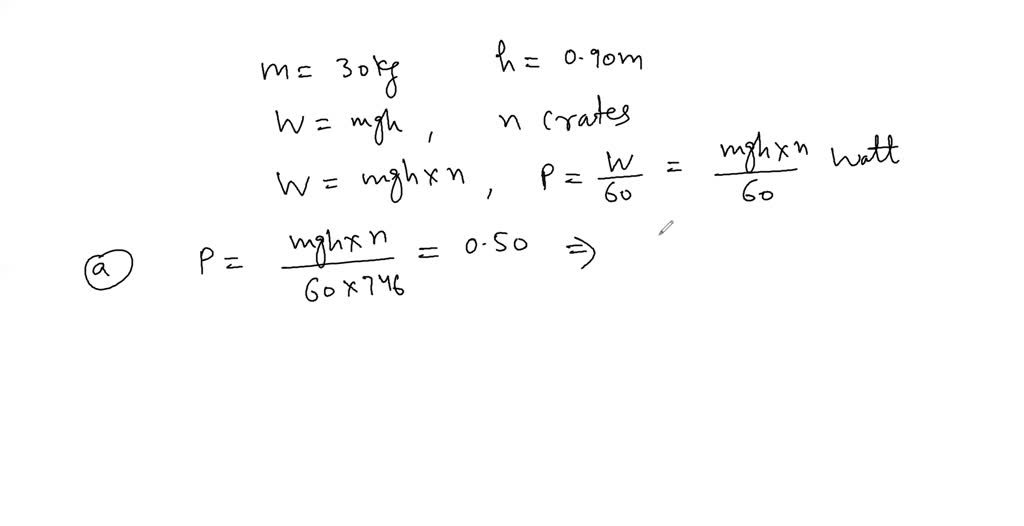 m = 30kg h = 0.90m
W = mgh, n crates
W = mgh×n, P = W/60 = mgh×n/60 Watt
(a) P = mgh×n/60×746 = 0.50 ⇒